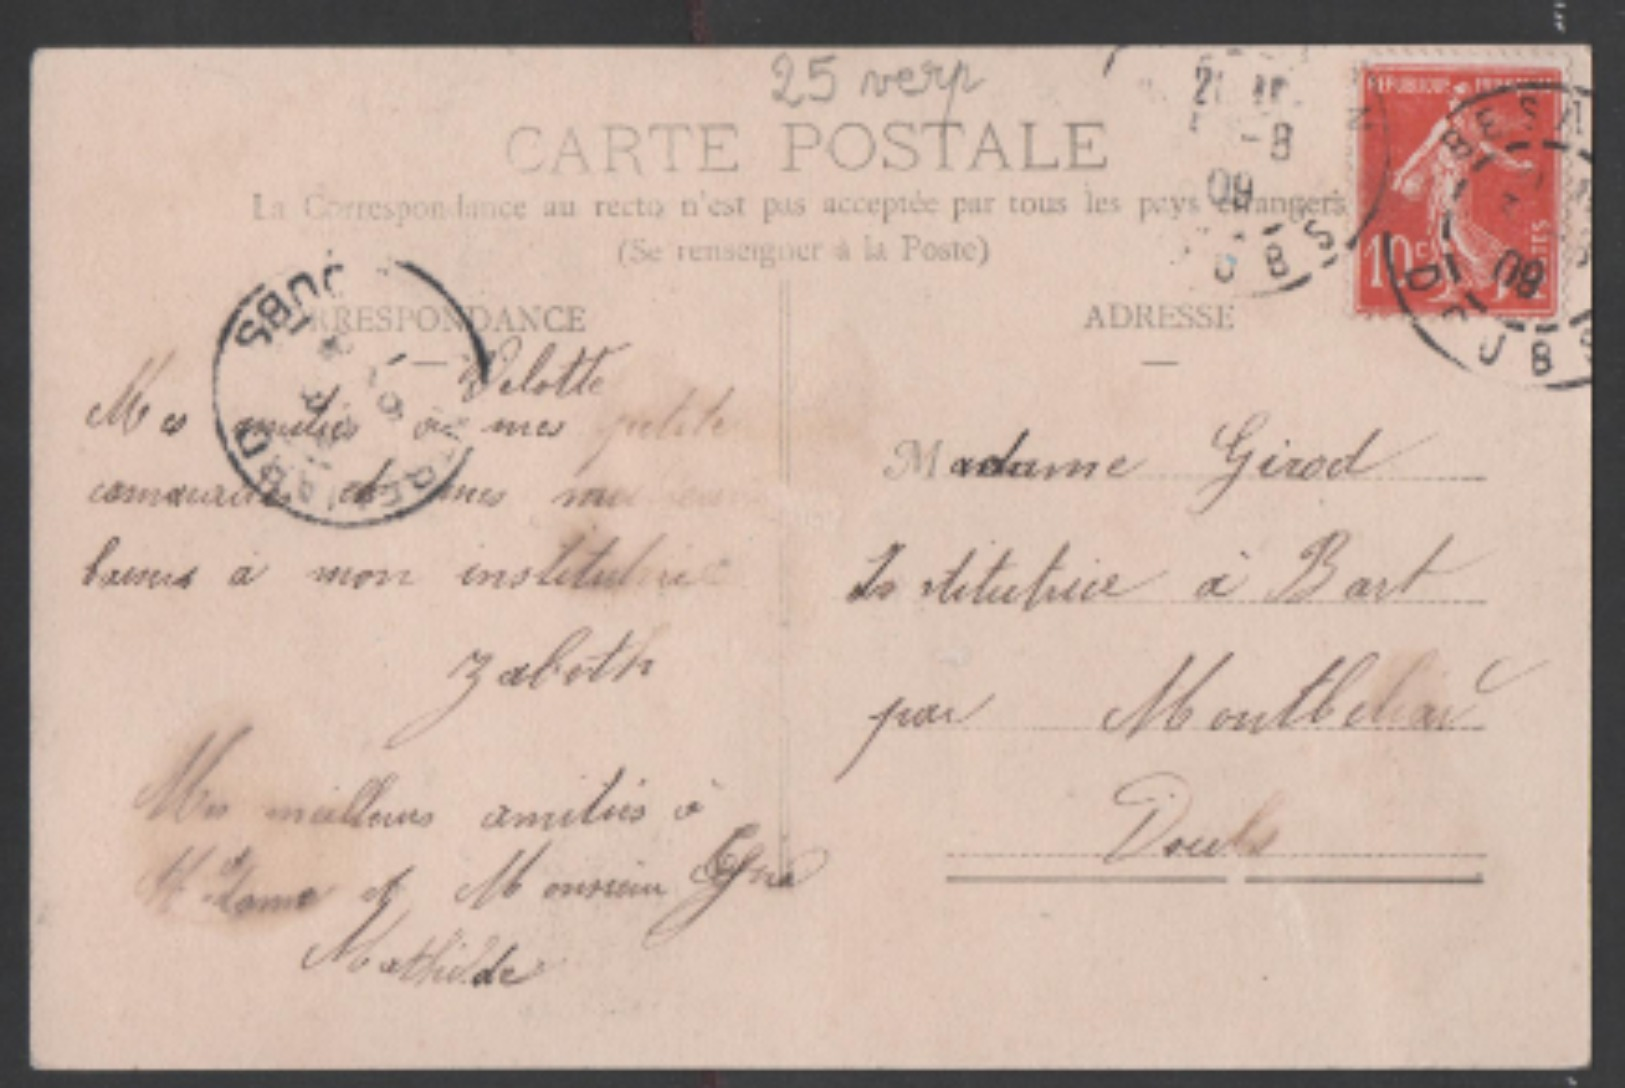 25 verp
CARTE POSTALE
La Correspondance au recto n'est pas acceptée par tous les pays étrangers
(Se renseigner à la Poste)
CORRESPONDANCE
ADRESSE
RÉPUBLIQUE FRANÇAISE
10 c POSTES
BESA
DOUBS
09
DOUBS
Velotte
Mes amitiés à mes petite
camarades et mes meilleurs
baisers à mon institutrice
Zabeth
Mes meilleurs amitiés à
Madame et Monsieur
Mathilde
Madame Girod
Institutrice à Bart
par Montbéliard
Doubs